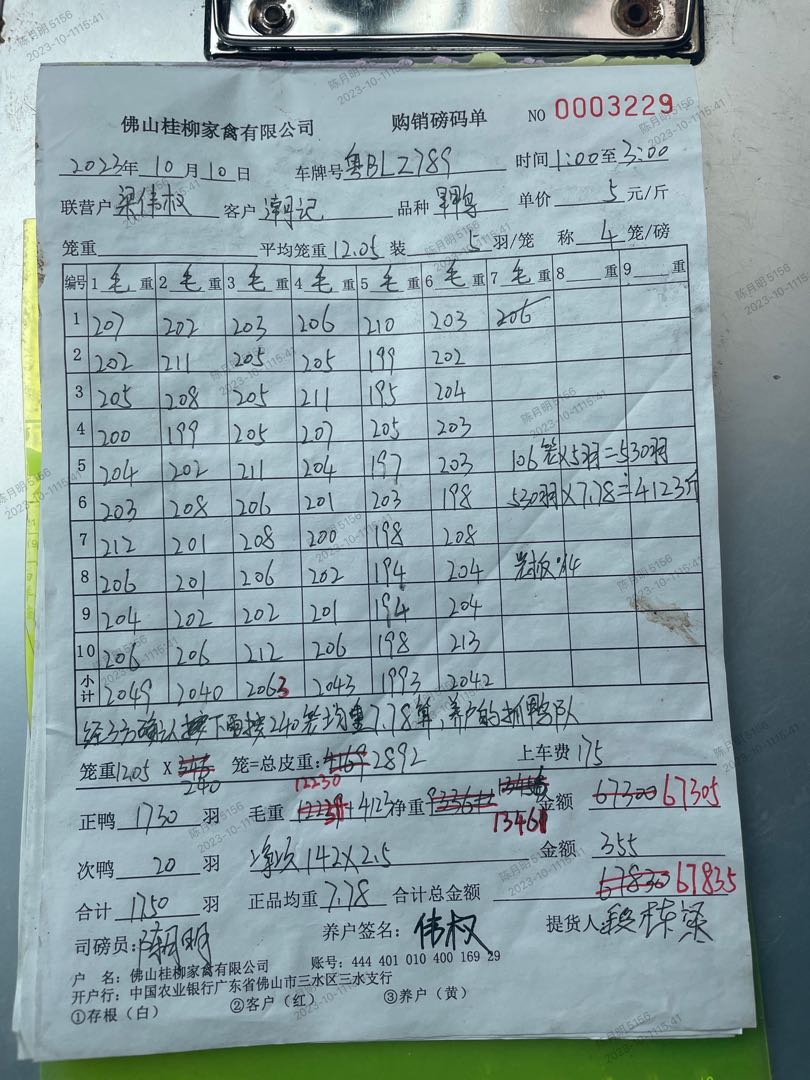 佛山桂柳家禽有限公司 购销磅码单 NO 0003229
2023年 10 月 10 日 车牌号 粤BLZ789 时间 1:00 至 3:00
联营户 梁伟权 客户 潮记 品种 单价 5 元/斤
笼重 平均笼重 12.05 装 5 羽/笼 称 4 笼/磅
编号 1 毛 重 2 毛 重 3 毛 重 4 毛 重 5 毛 重 6 毛 重 7 毛 重 8 重 9 重
1 207 202 203 206 210 203 206
2 202 211 205 205 199 202
3 205 208 205 211 195 204
4 200 199 205 207 205 203
5 204 202 211 204 197 203 106笼×5羽=530羽
6 203 208 206 201 203 198 530羽×7.78=4123斤
7 212 201 208 200 198 208
8 206 201 206 202 194 204 :14
9 204 202 202 201 194 204
10 206 206 212 206 198 213
小计 2049 2040 2063 2043 1993 2042
经三方确认 下雨按240笼均重7.78算,养户的抓鸭队
笼重 12.05 X 240 笼=总皮重: 4169 2892 上车费 175
12230
正鸭 1730 羽 毛重 +4123 净重 13461 金额 67300 67305
次鸭 20 羽 142×2.5 金额 355
67830 67835
合计 1750 羽 正品均重 7.78 合计总金额
司磅员: 陈月明 养户签名: 伟权 提货人
户 名: 佛山桂柳家禽有限公司 账号: 444 401 010 400 169 29
开户行: 中国农业银行广东省佛山市三水区三水支行
①存根(白) ②客户(红) ③养户(黄)
陈月明 5156
2023-10-11 15:41